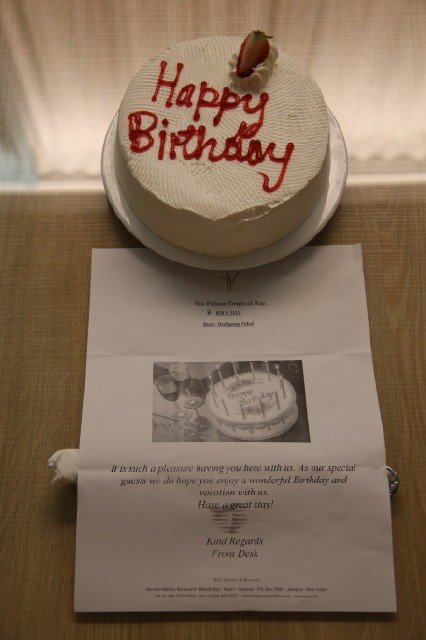 Happy
Birthday
Riu Palace Tropical Bay
Dear: Wolfgang
Happy
Birthday
It is such a pleasure having you here with us. As our special
guests we do hope you enjoy a wonderful Birthday and
vacation with us.
Have a great stay!
Kind Regards
Front Desk
RIU Hotels & Resorts
Norman Manley Boulevard Bloody Bay Negril Hanover P.O. Box Jamaica West Indies